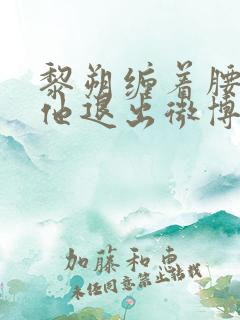 黎朔缠着腰
他退出微博
加藤和惠
未经同意禁止转载